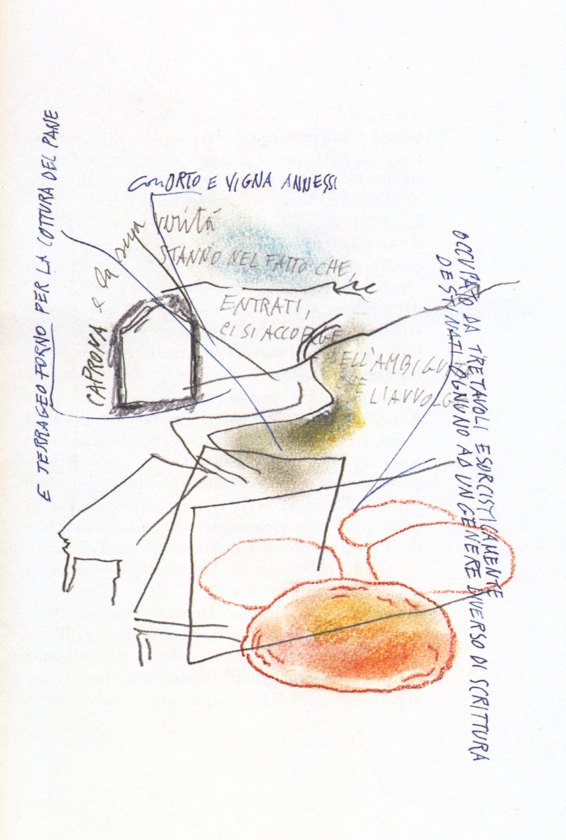 con ORTO E VIGNA ANNESSI
E TERRAGEO FORNO PER LA COTTURA DEL PANE
CAPRONA e la sua
verità
STANNO NEL FATTO CHE,
ENTRATI,
CI SI ACCORGE
ELL'AMBIGU
E L'AVVOLG
OCCUPATO DA TRE TAVOLI ESORCISTICAMENTE
DESTINATI OGNUNO AD UN GENERE DIVERSO DI SCRITTURA